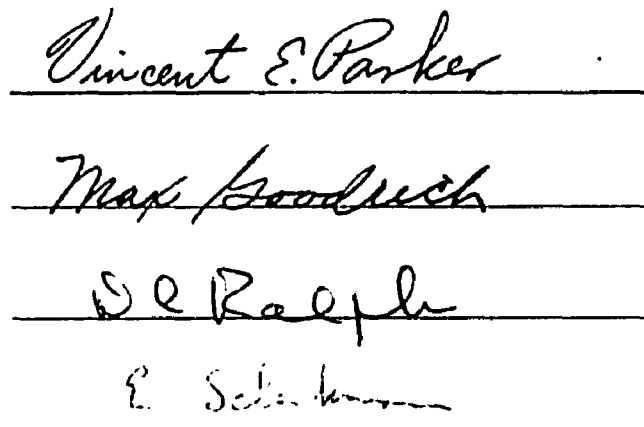 Vincent E. Parker
Max Goodrich
D C Ralph
E